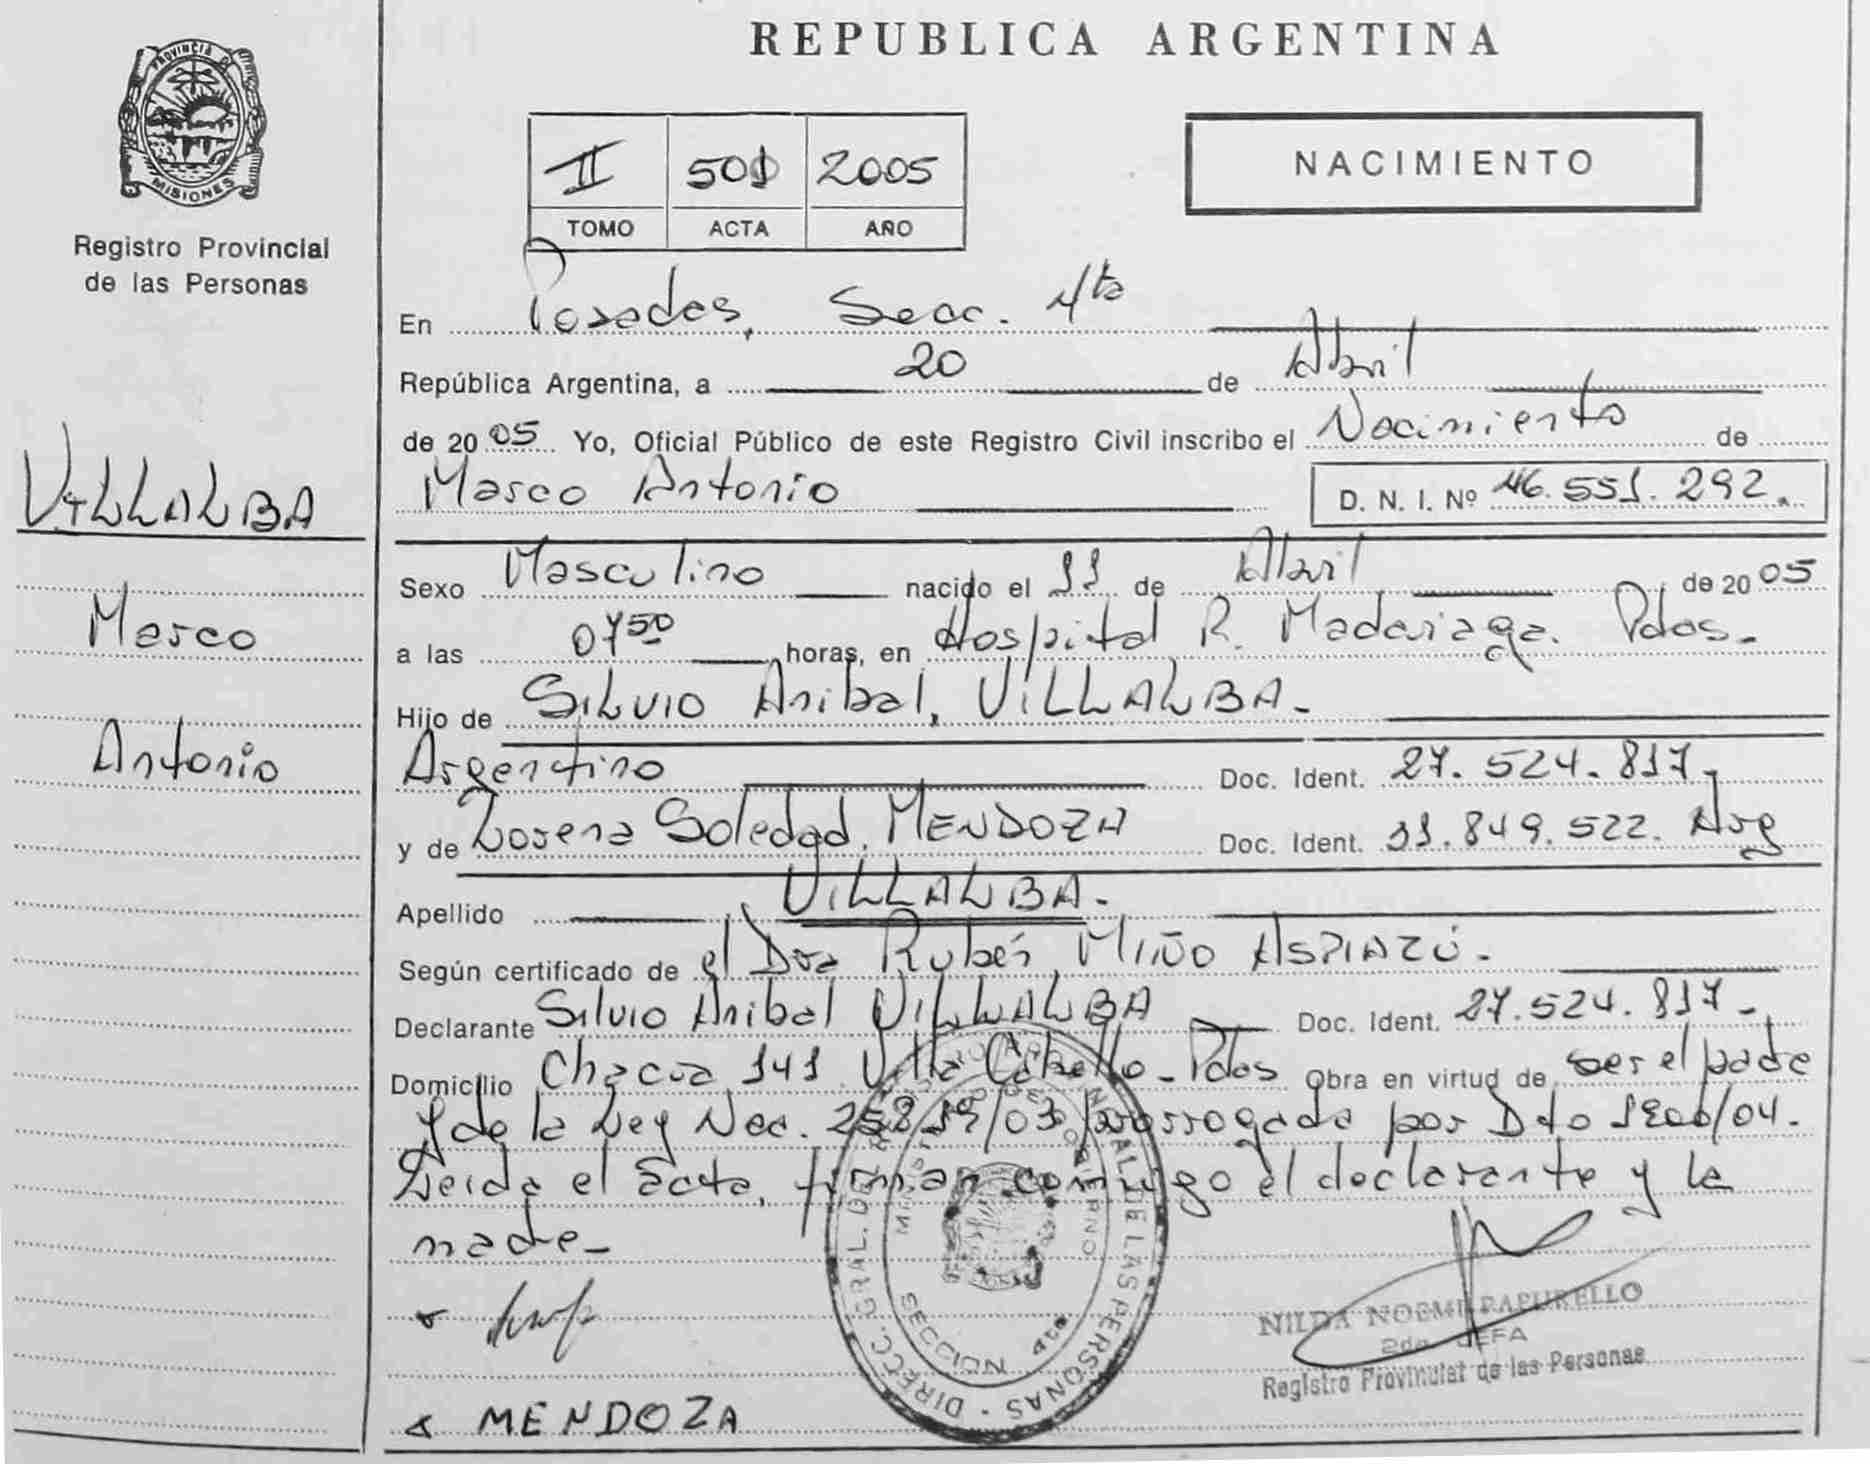 REPUBLICA ARGENTINA
PROVINCIA DE
MISIONES
Registro Provincial
de las Personas
II 501 2005
TOMO ACTA AÑO
NACIMIENTO
En Posadas, Secc. 4ta
República Argentina, a 20 de Abril
de 20 05 Yo, Oficial Público de este Registro Civil inscribo el Nacimiento de
Marco Antonio D. N. I. Nº 46.551.292.
VILLALBA
Marco
Antonio
Sexo Masculino nacido el 11 de Abril de 20 05
a las 07 50 horas, en Hospital R. Madariaga. Pdas.
Hijo de SILVIO Anibal, VILLALBA.
Argentino Doc. Ident. 27.524.817.
y de Lorena Soledad, MENDOZA Doc. Ident. 31.849.522. Arg
Apellido VILLALBA.
Según certificado de el Dra Rubén MIÑO ASPIAZÚ.
Declarante Silvio Anibal VILLALBA Doc. Ident. 27.524.817.
Domicilio Chacra 141 Villa Cabello - Pdas Obra en virtud de ser el padre
y de la Ley Nac. 25819/03 prorrogada por Dto 1206/04.
Leida el acta, firman conmigo el declarante y la
madre
MENDOZA
DIRECC. GRAL. DEL REGISTRO PROVINCIAL DE LAS PERSONAS
MINISTERIO DE GOBIERNO
SECCION 4ta.
NILDA NOEMI PAPURELLO
2da. JEFA
Registro Provincial de las Personas